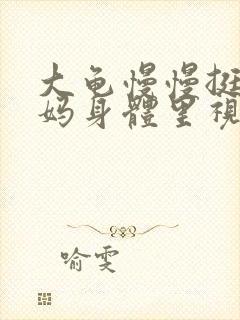 大龟慢慢挺
妈身體里視
喻雯